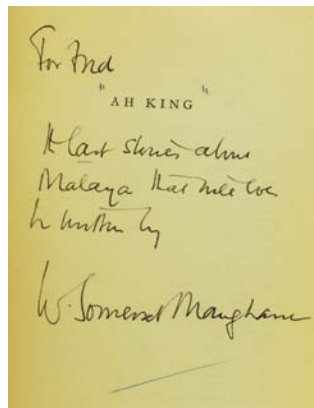 For Fred
"AH KING"
The last stories about
Malaya that will ever
be written by
W. Somerset Maugham